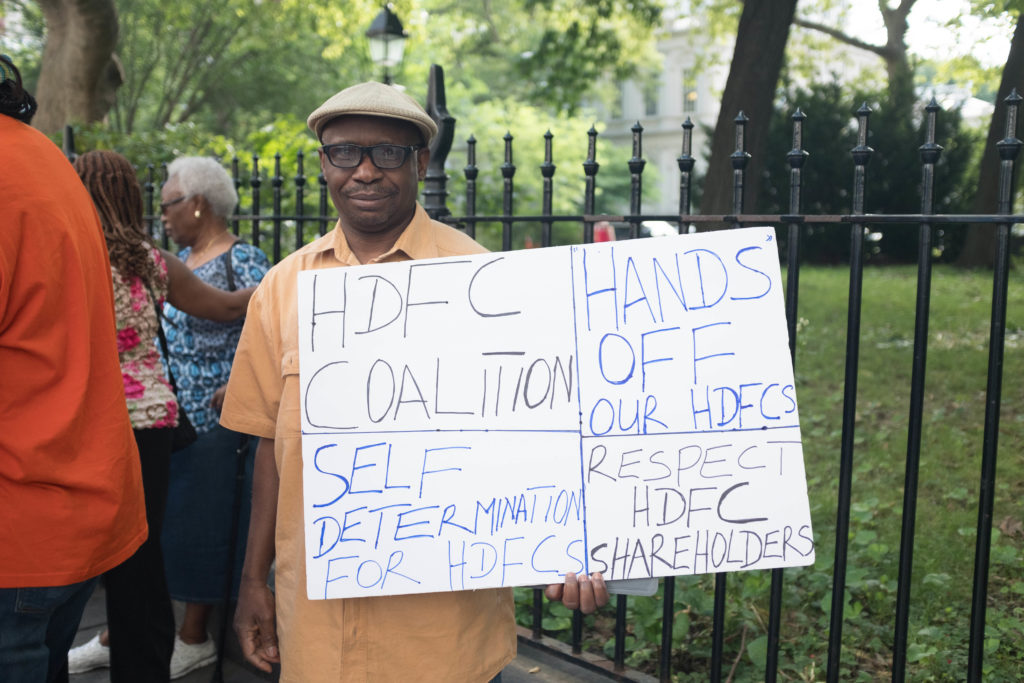 HDFC
COALITION
"HANDS"
OFF
OUR HDFCS
SELF
DETERMINATION
FOR HDFCS
RESPECT
HDFC
SHAREHOLDERS